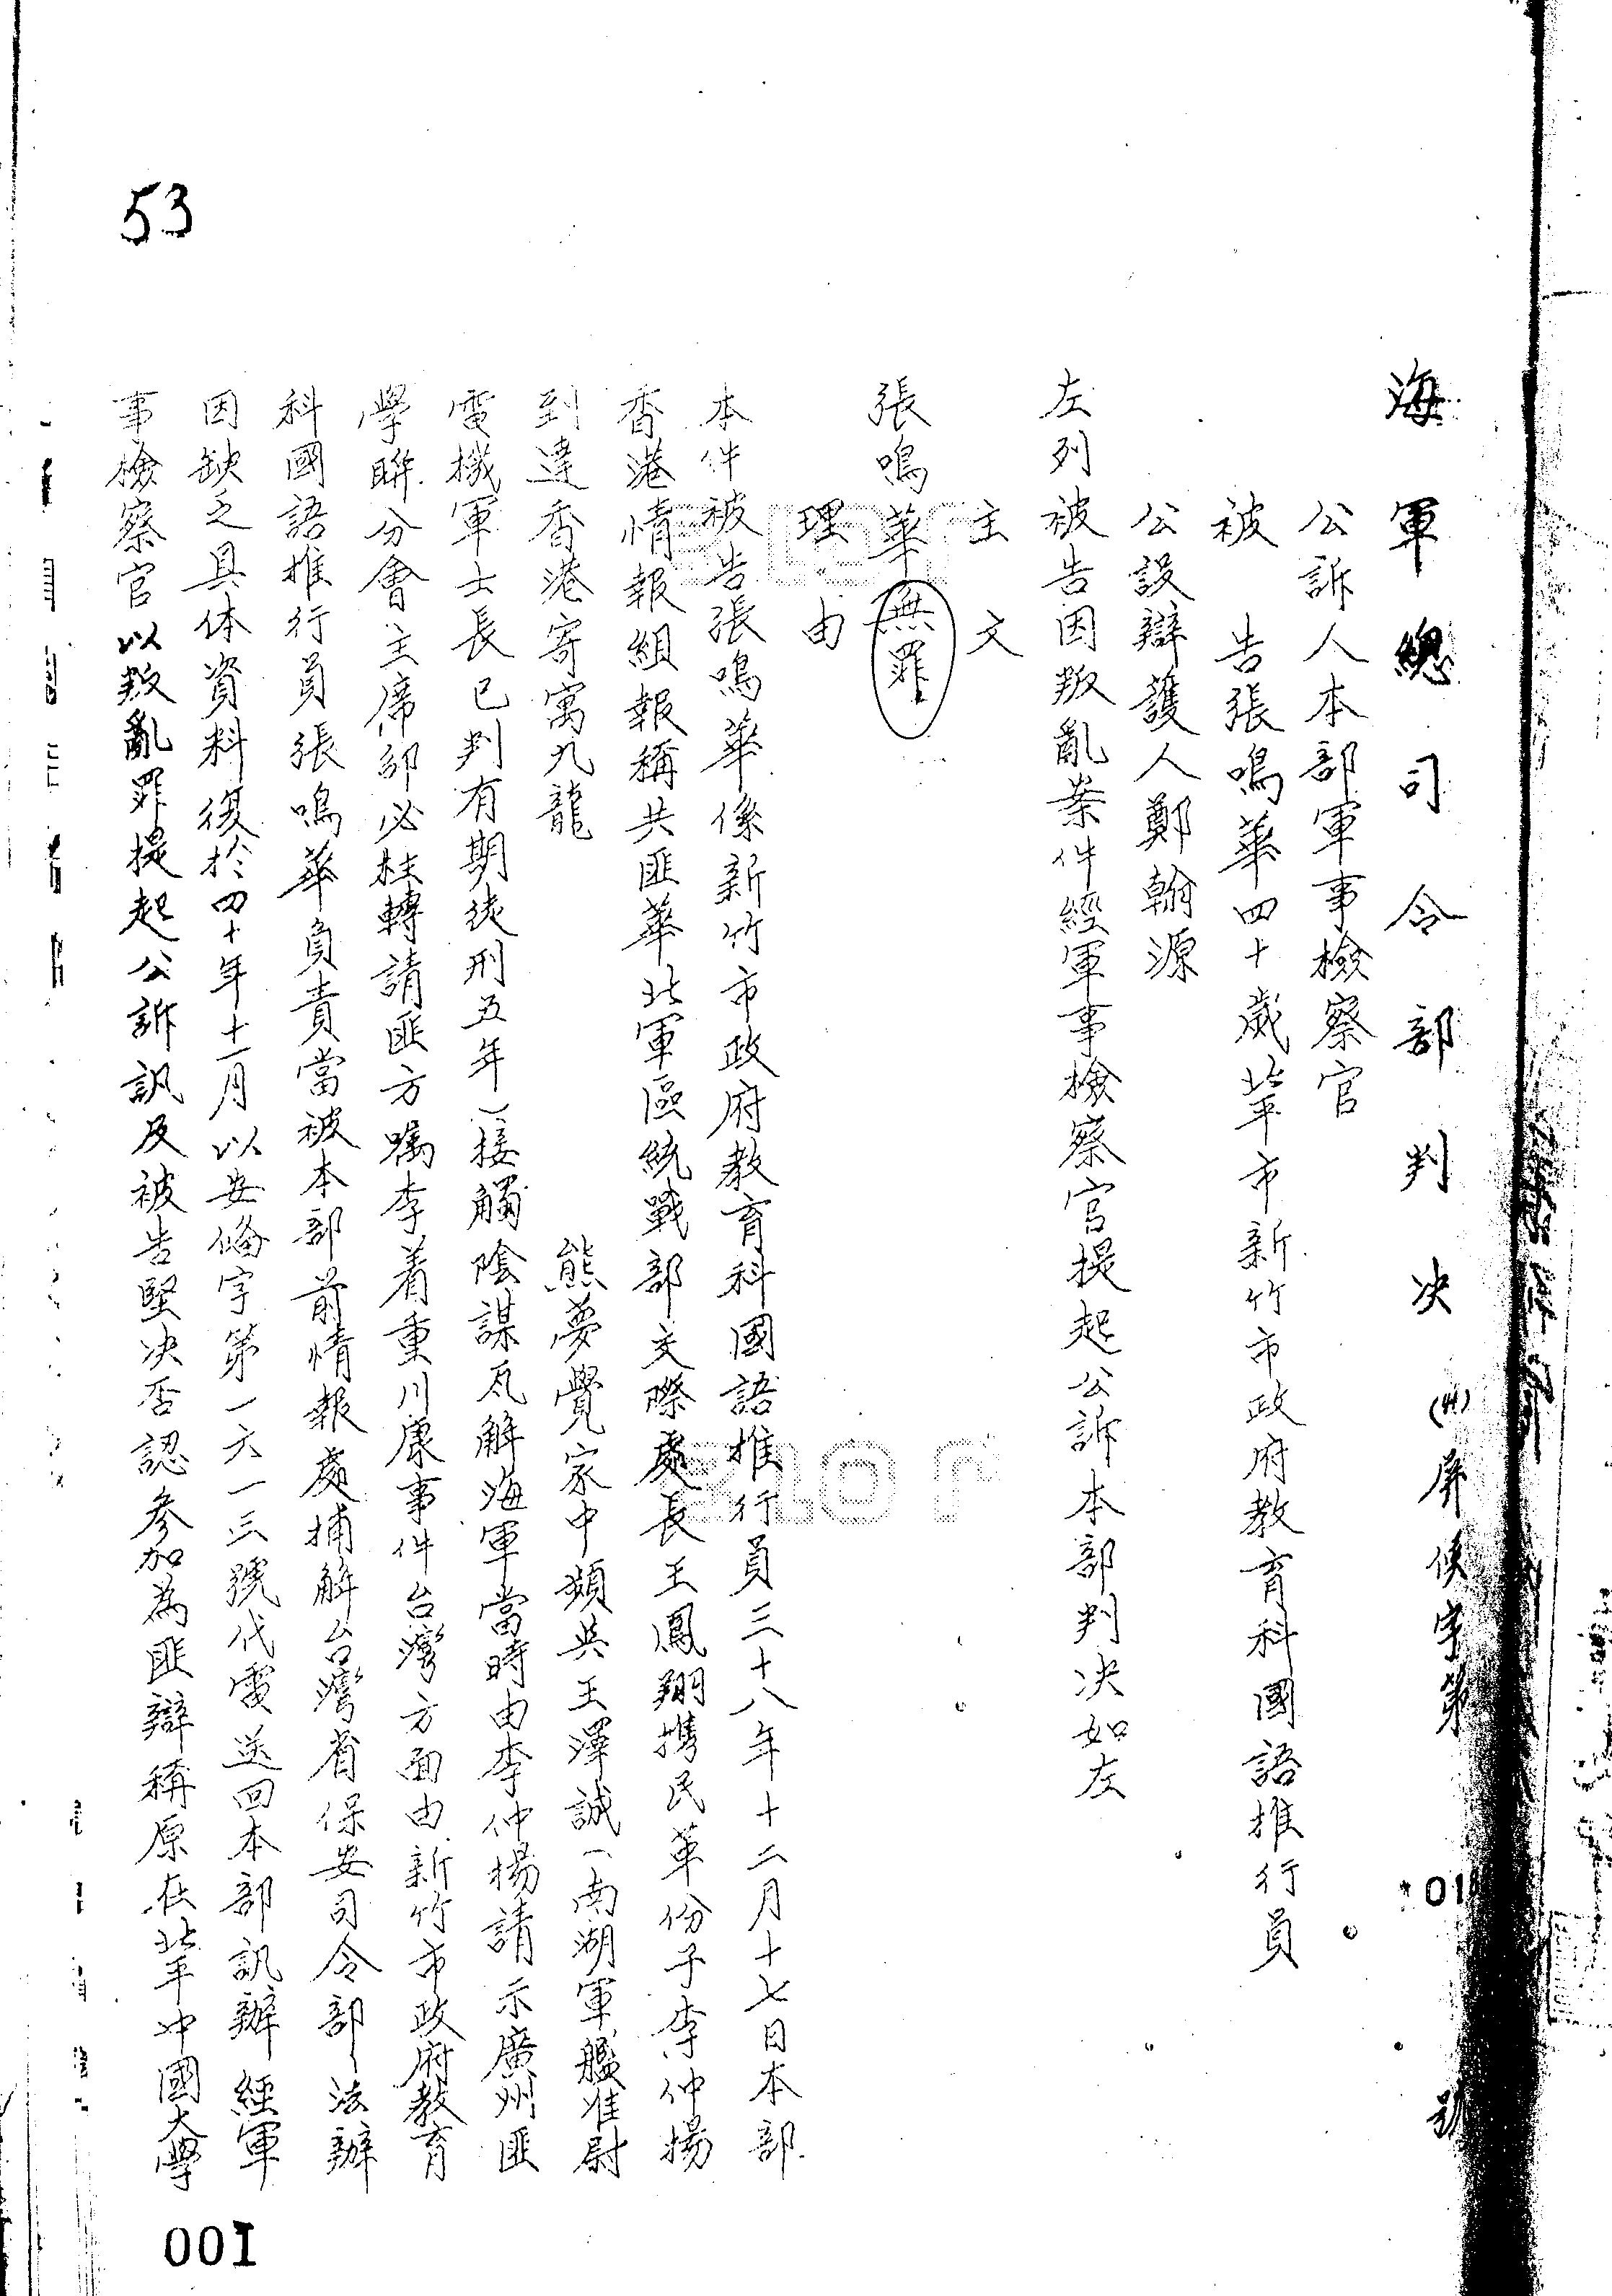 海軍總司令部判決 (卅)屏候字第 018 號
公訴人本部軍事檢察官
被告張鳴華四十歲北平市新竹市政府教育科國語推行員
公設辯護人鄭翰源
左列被告因叛亂案件經軍事檢察官提起公訴本部判决如左
主文
張鳴華無罪
理由
本件被告張鳴華係新竹市政府教育科國語推行員三十八年十二月十七日本部
香港情報組報稱共匪華北軍區統戰部交際處長王鳳翔携民革份子李仲揚
到達香港寄寓九龍 熊夢覺家中頻與王澤誠(南湖軍艦准尉
電機軍士長已判有期徒刑五年)接觸陰謀瓦解海軍當時由李仲揚請示廣州匪
學聯分會主席部必柱轉請匪方囑李着重川康事件台灣方面由新竹市政府教育
科國語推行員張鳴華負責當被本部前情報處捕解台灣省保安司令部法辦
因缺乏具体資料復於四十年十一月以安偹字第一六一三號代電送回本部訊辦經軍
事檢察官以叛亂罪提起公訴訊及被告堅决否認參加為匪辯稱原在北平中國大學
53
001